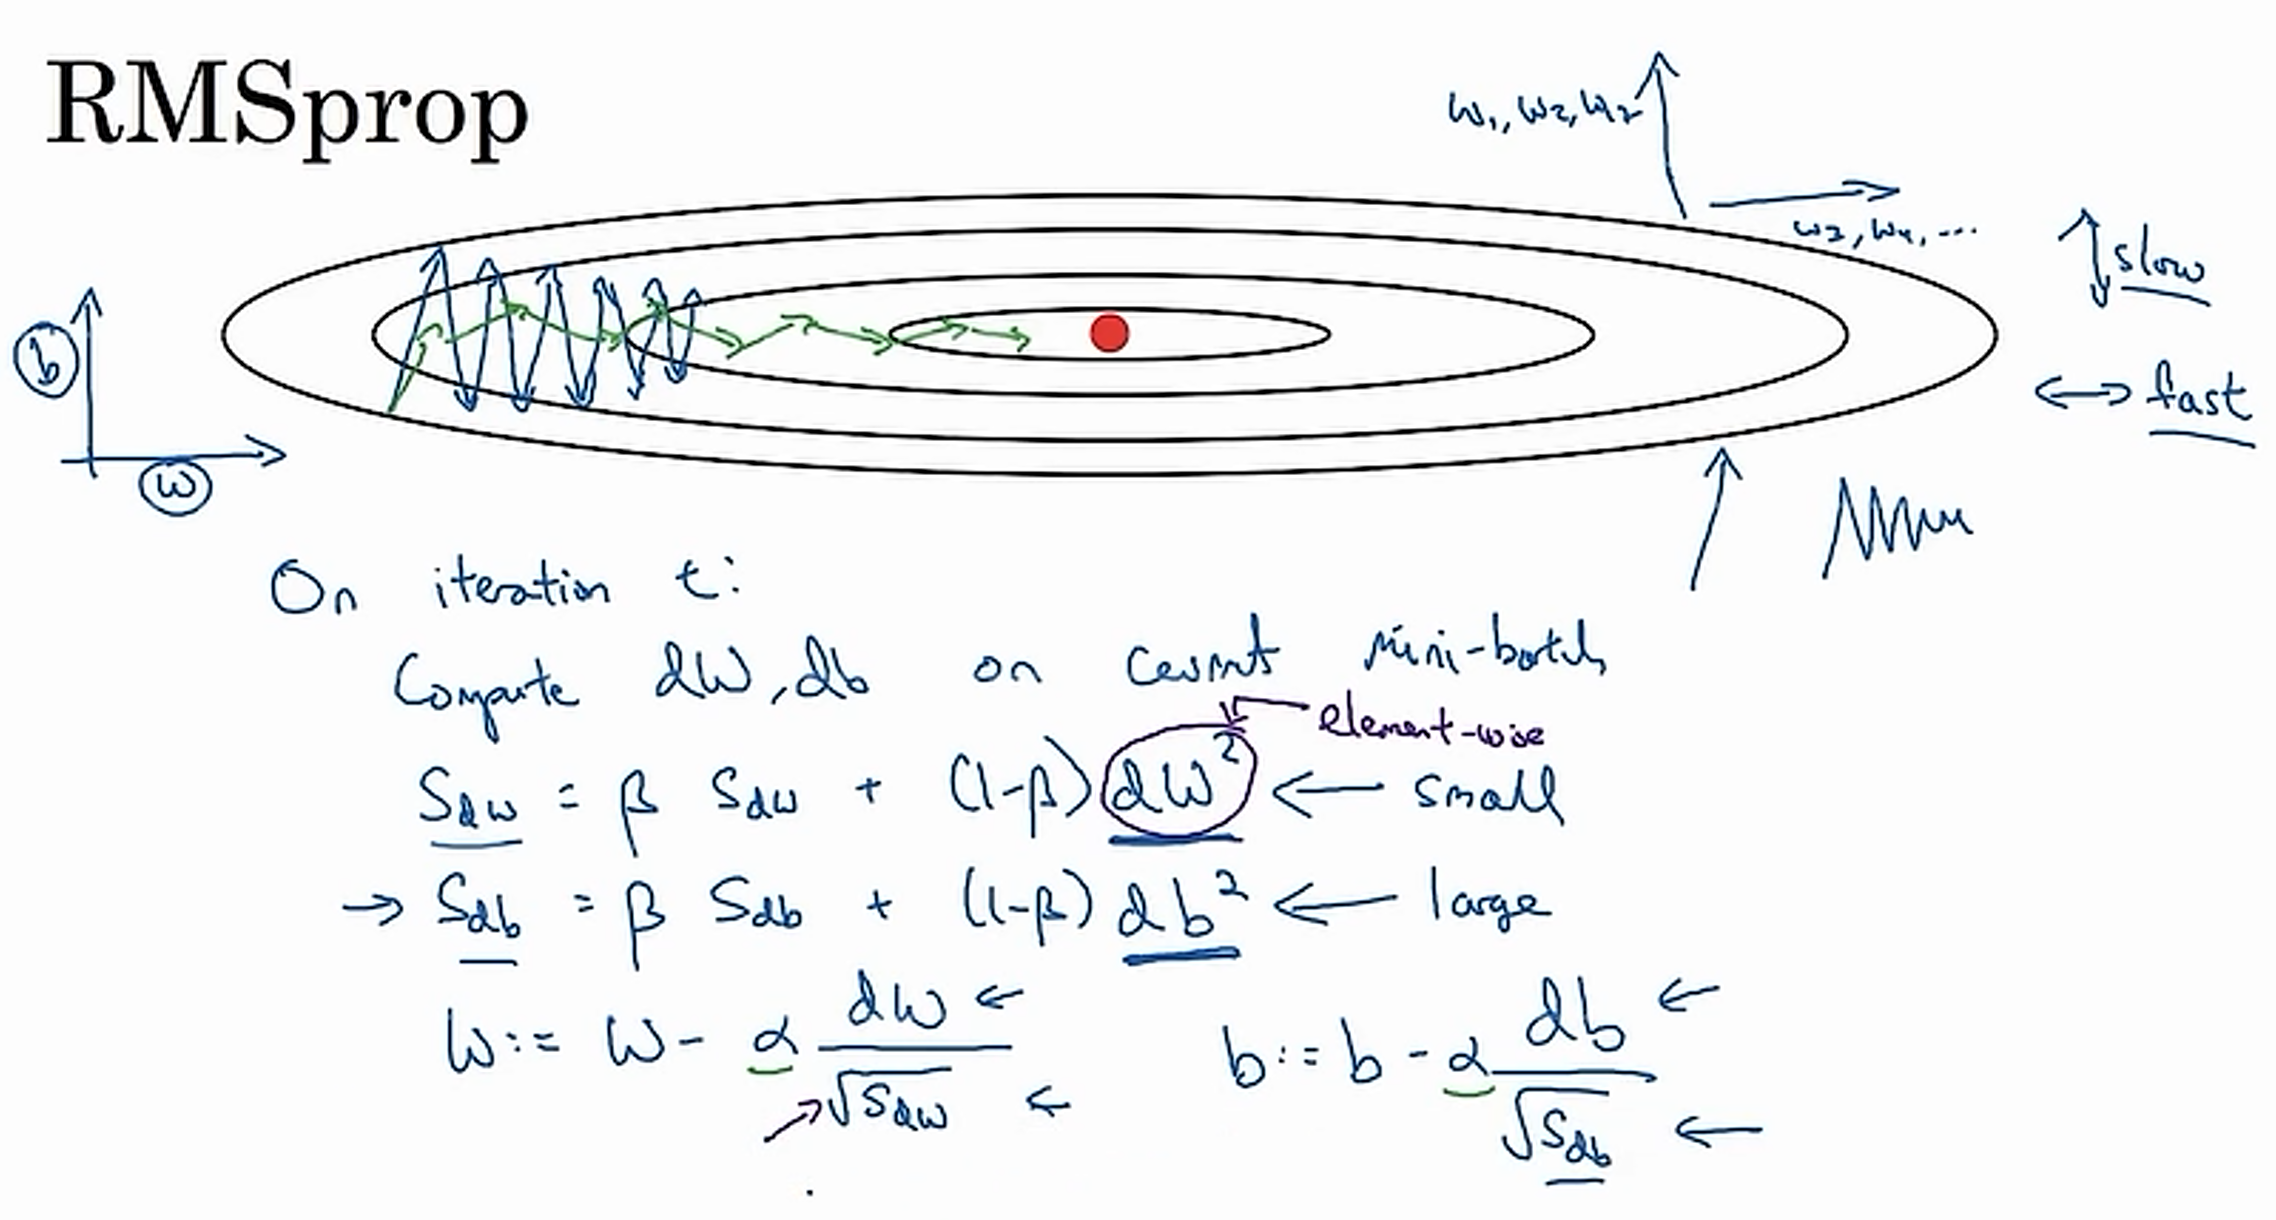 RMSprop
w₁, w₂, w₂
w₃, w₄, ...
slow
b
fast
w
On iteration t:
Compute dW, db on current mini-batch
element-wise
S_dw = β S_dw + (1-β) dW² ← small
→ S_db = β S_db + (1-β) db² ← large
W := W - α dW / √S_dw ← b := b - α db / √S_db ←